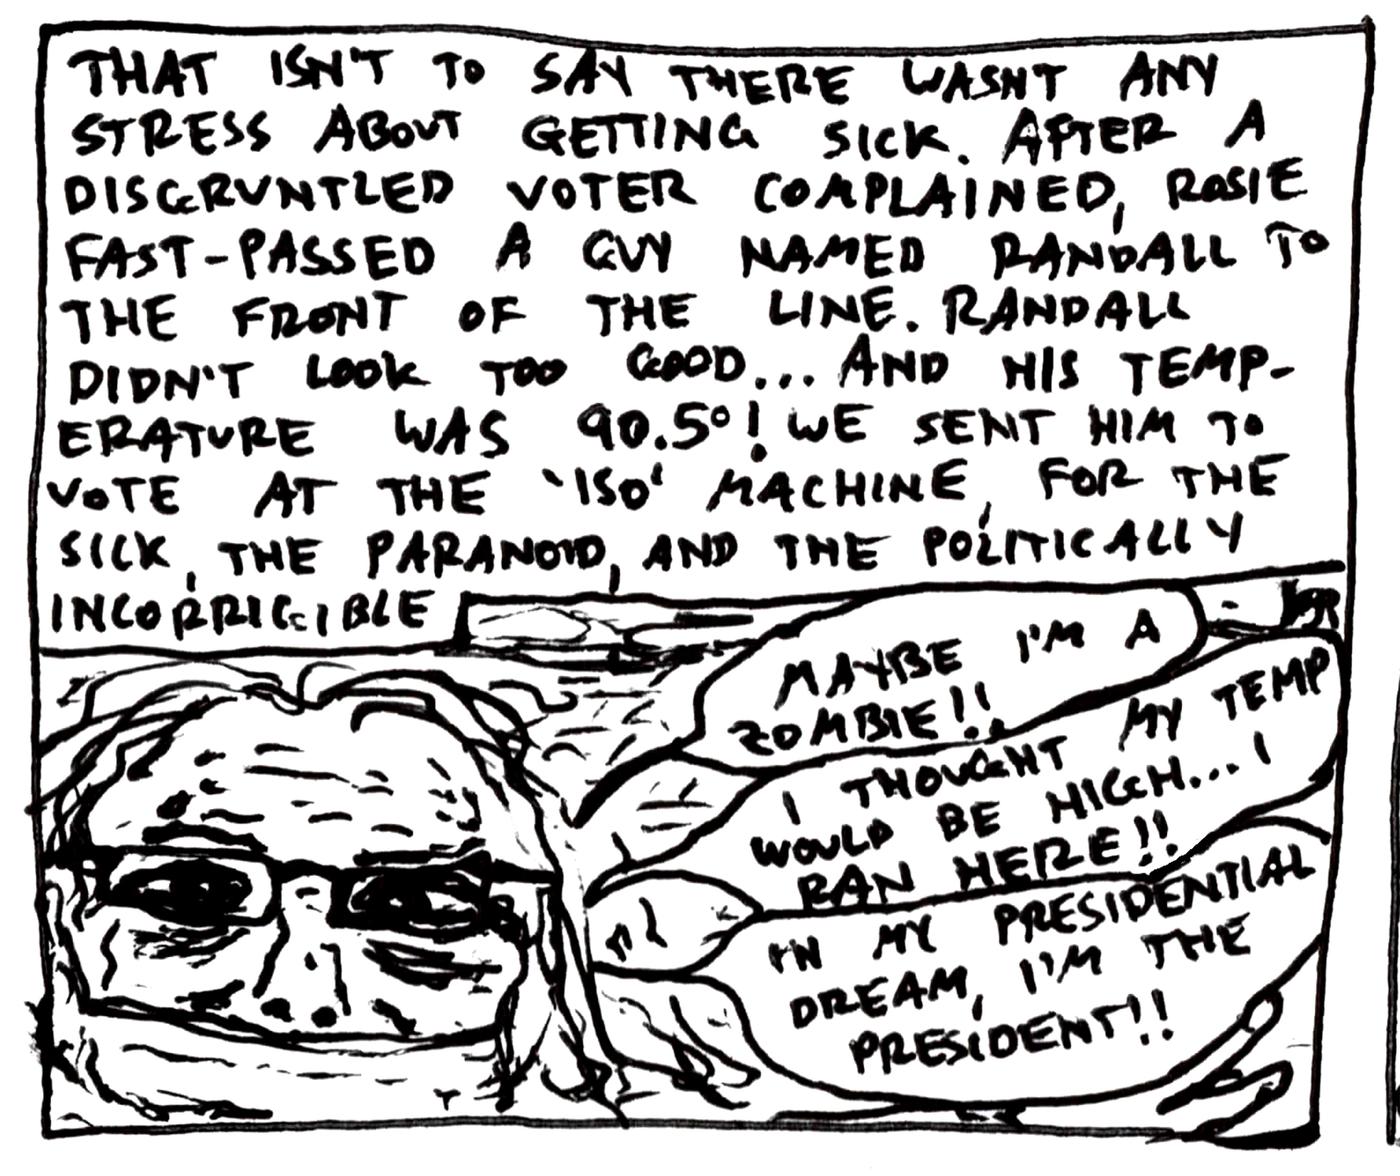 THAT ISN'T TO SAY THERE WASN'T ANY
STRESS ABOUT GETTING SICK. AFTER A
DISGRUNTLED VOTER COMPLAINED, ROSIE
FAST-PASSED A GUY NAMED RANDALL TO
THE FRONT OF THE LINE. RANDALL
DIDN'T LOOK TOO GOOD... AND HIS TEMP-
ERATURE WAS 90.5°! WE SENT HIM TO
VOTE AT THE 'ISO' MACHINE, FOR THE
SICK, THE PARANOID, AND THE POLITICALLY
INCORRIGIBLE
MAYBE I'M A
ZOMBIE!!
I THOUGHT MY TEMP
WOULD BE HIGH... I
RAN HERE!!
IN MY PRESIDENTIAL
DREAM, I'M THE
PRESIDENT!!